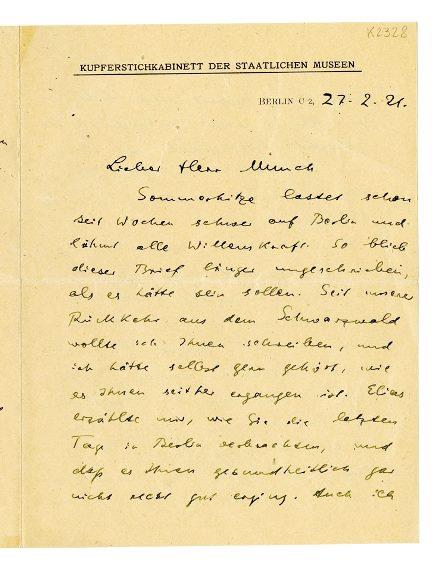 K2328
KUPFERSTICHKABINETT DER STAATLICHEN MUSEEN
BERLIN C 2, 27. 2. 21.
Lieber Herr Munch
Sommerhitze lastet schon
seit Wochen schwer auf Berlin und
lähmt alle Willenskraft. So blieb
dieser Brief länger ungeschrieben,
als es hätte sein sollen. Seit unserer
Rückkehr aus dem Schwarzwald
wollte ich Ihnen schreiben, und
ich hätte selbst gern gehört, wie
es Ihnen seither ergangen ist. Elias
erzählte mir, wie Sie die letzten
Tage in Berlin verbrachten, und
daß es Ihnen gesundheitlich gar
nicht recht gut erging. Auch ich